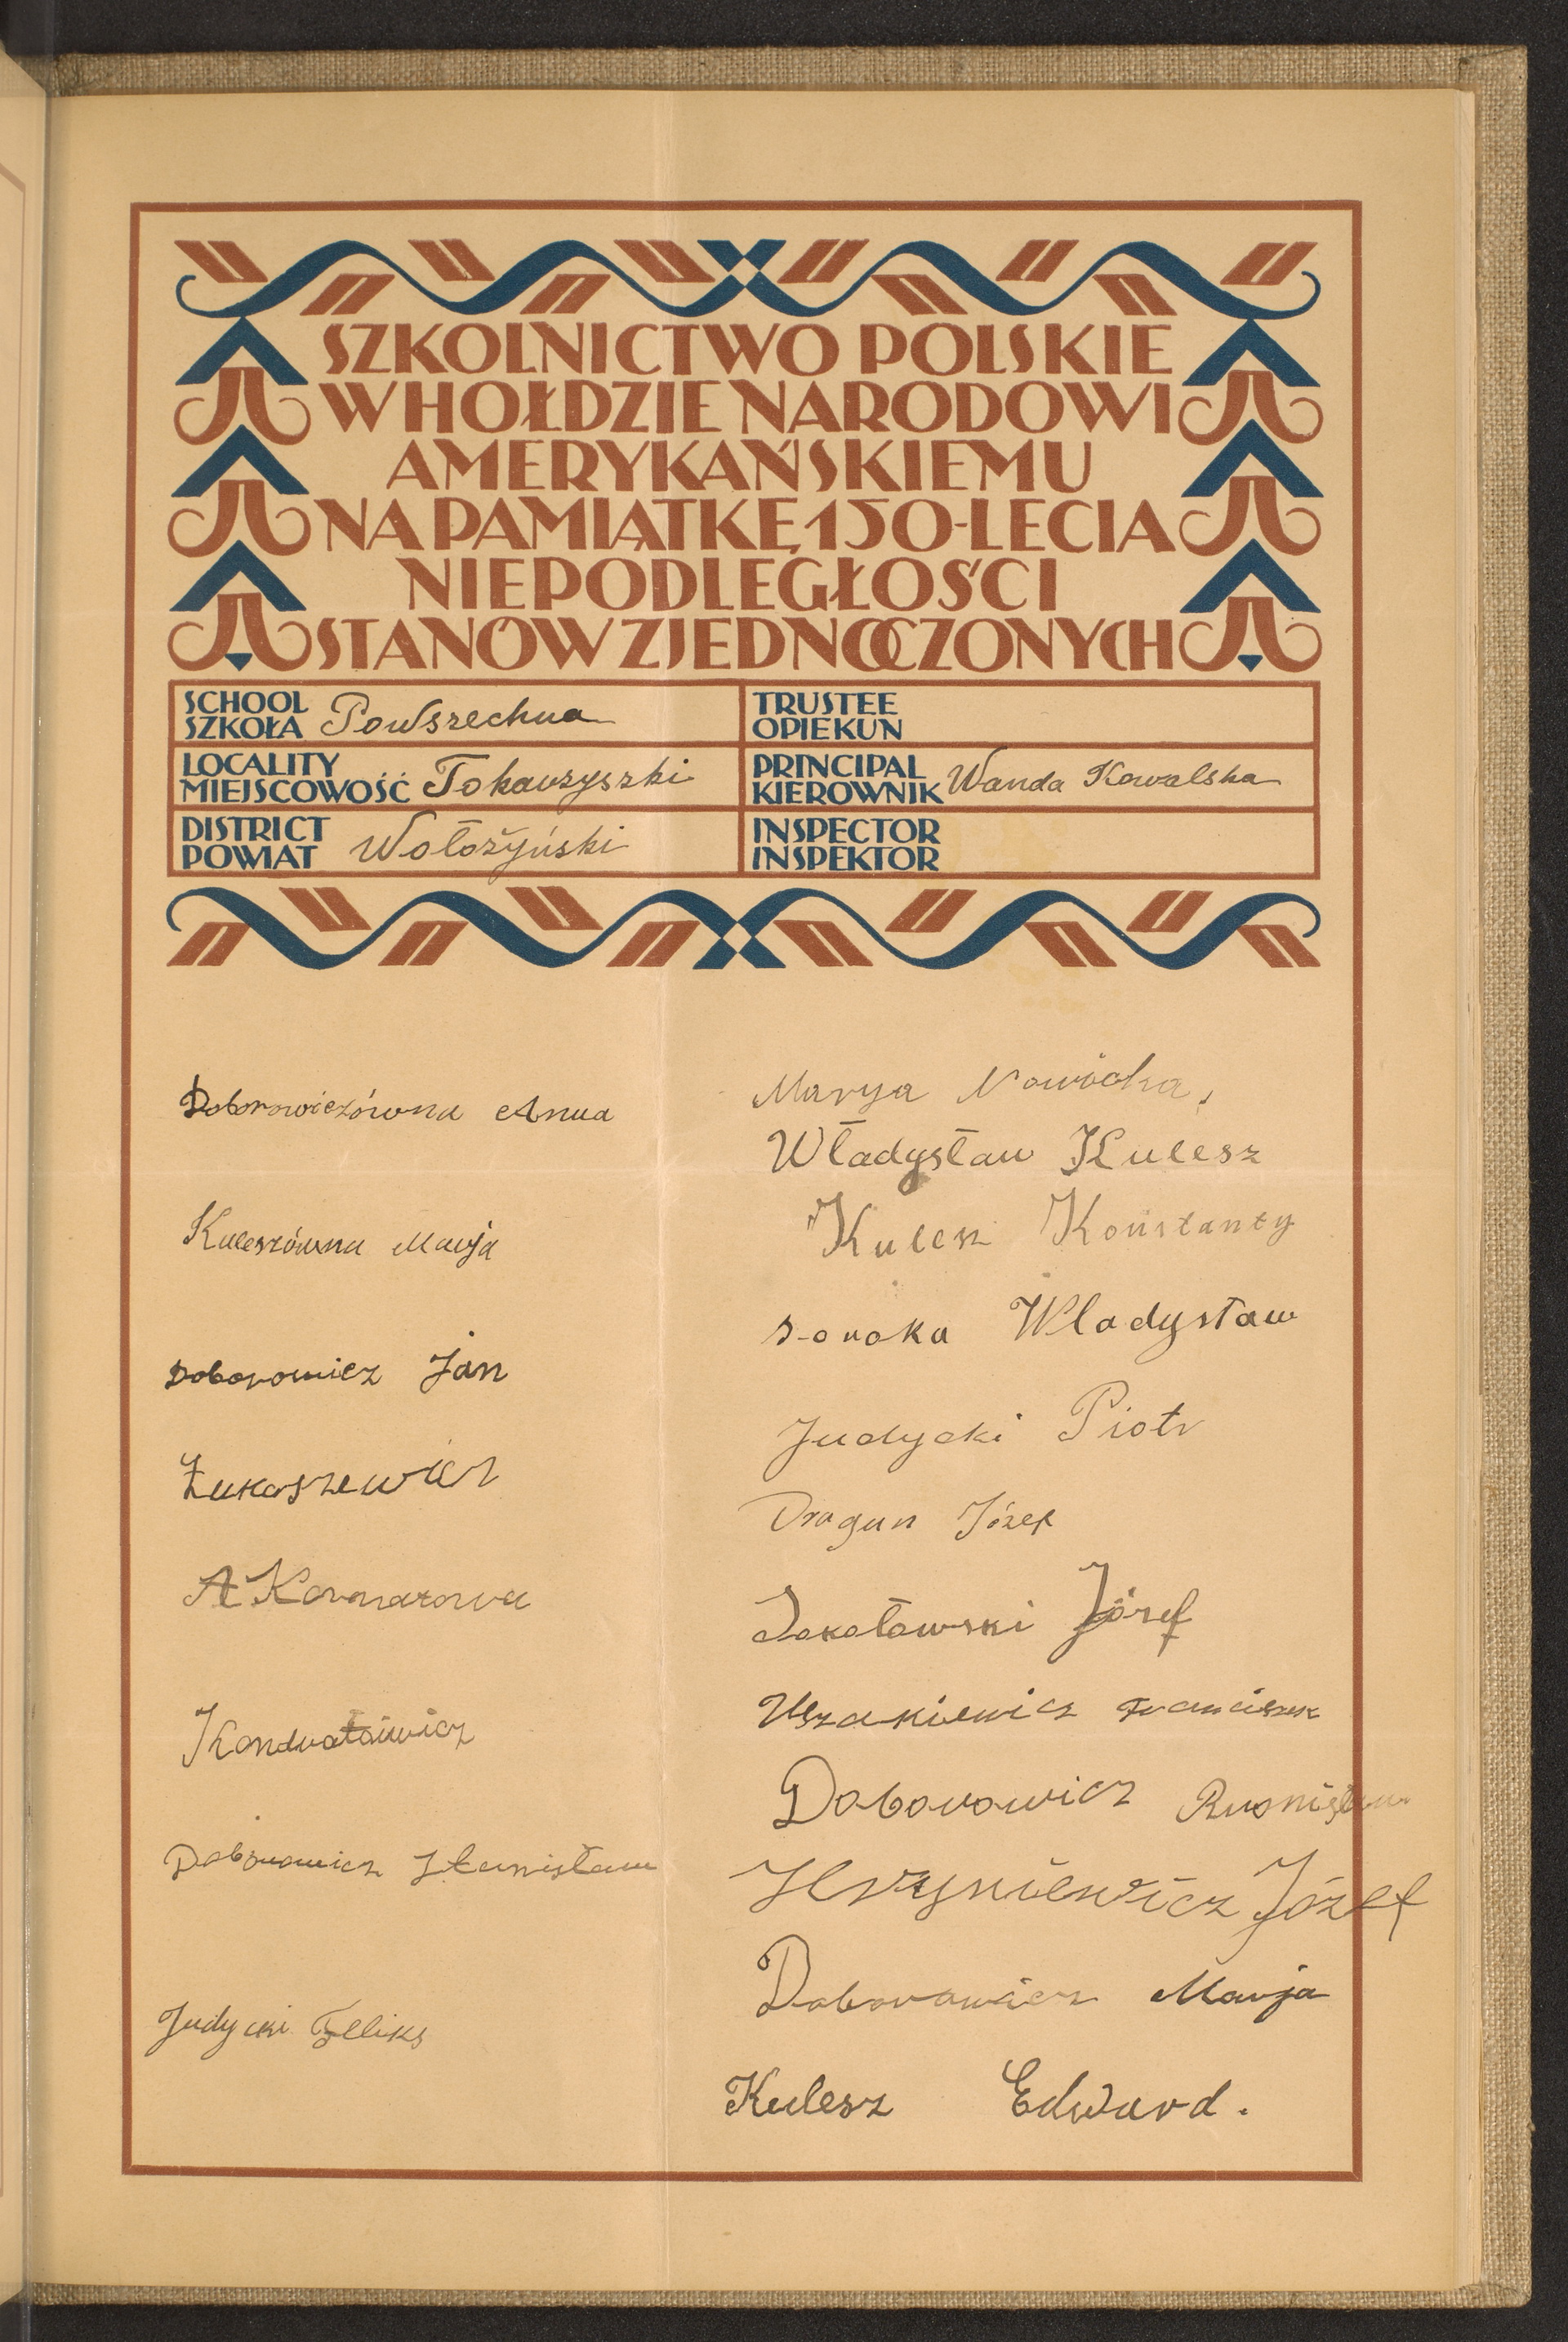 SZKOLNICTWO POLSKIE
W HOŁDZIE NARODOWI
AMERYKAŃSKIEMU
NA PAMIĄTKĘ 150-LECIA
NIEPODLEGŁOŚCI
STANÓW ZJEDNOCZONYCH
SCHOOL
SZKOŁA Powszechna
LOCALITY
MIEJSCOWOŚĆ Tokarzyszki
DISTRICT
POWIAT Wołożyński
TRUSTEE
OPIEKUN
PRINCIPAL
KIEROWNIK Wanda Kowalska
INSPECTOR
INSPEKTOR
Doborowiczówna Anna
Kuleszówna Marja
Doborowicz Jan
Łukaszewicz
A Kornazowa
Kondratowicz
Doborowicz Stanisław
Judycki Feliks
Marya Nowicka,
Władysław Kulesz
Kulesz Konstanty
Soroka Władysław
Judycki Piotr
Dragun Józef
Sokołowski Józef
Uszakiewicz Franciszek
Doborowicz
Hryniewicz Józef
Doborowicz Marja
Kulesz Edward.